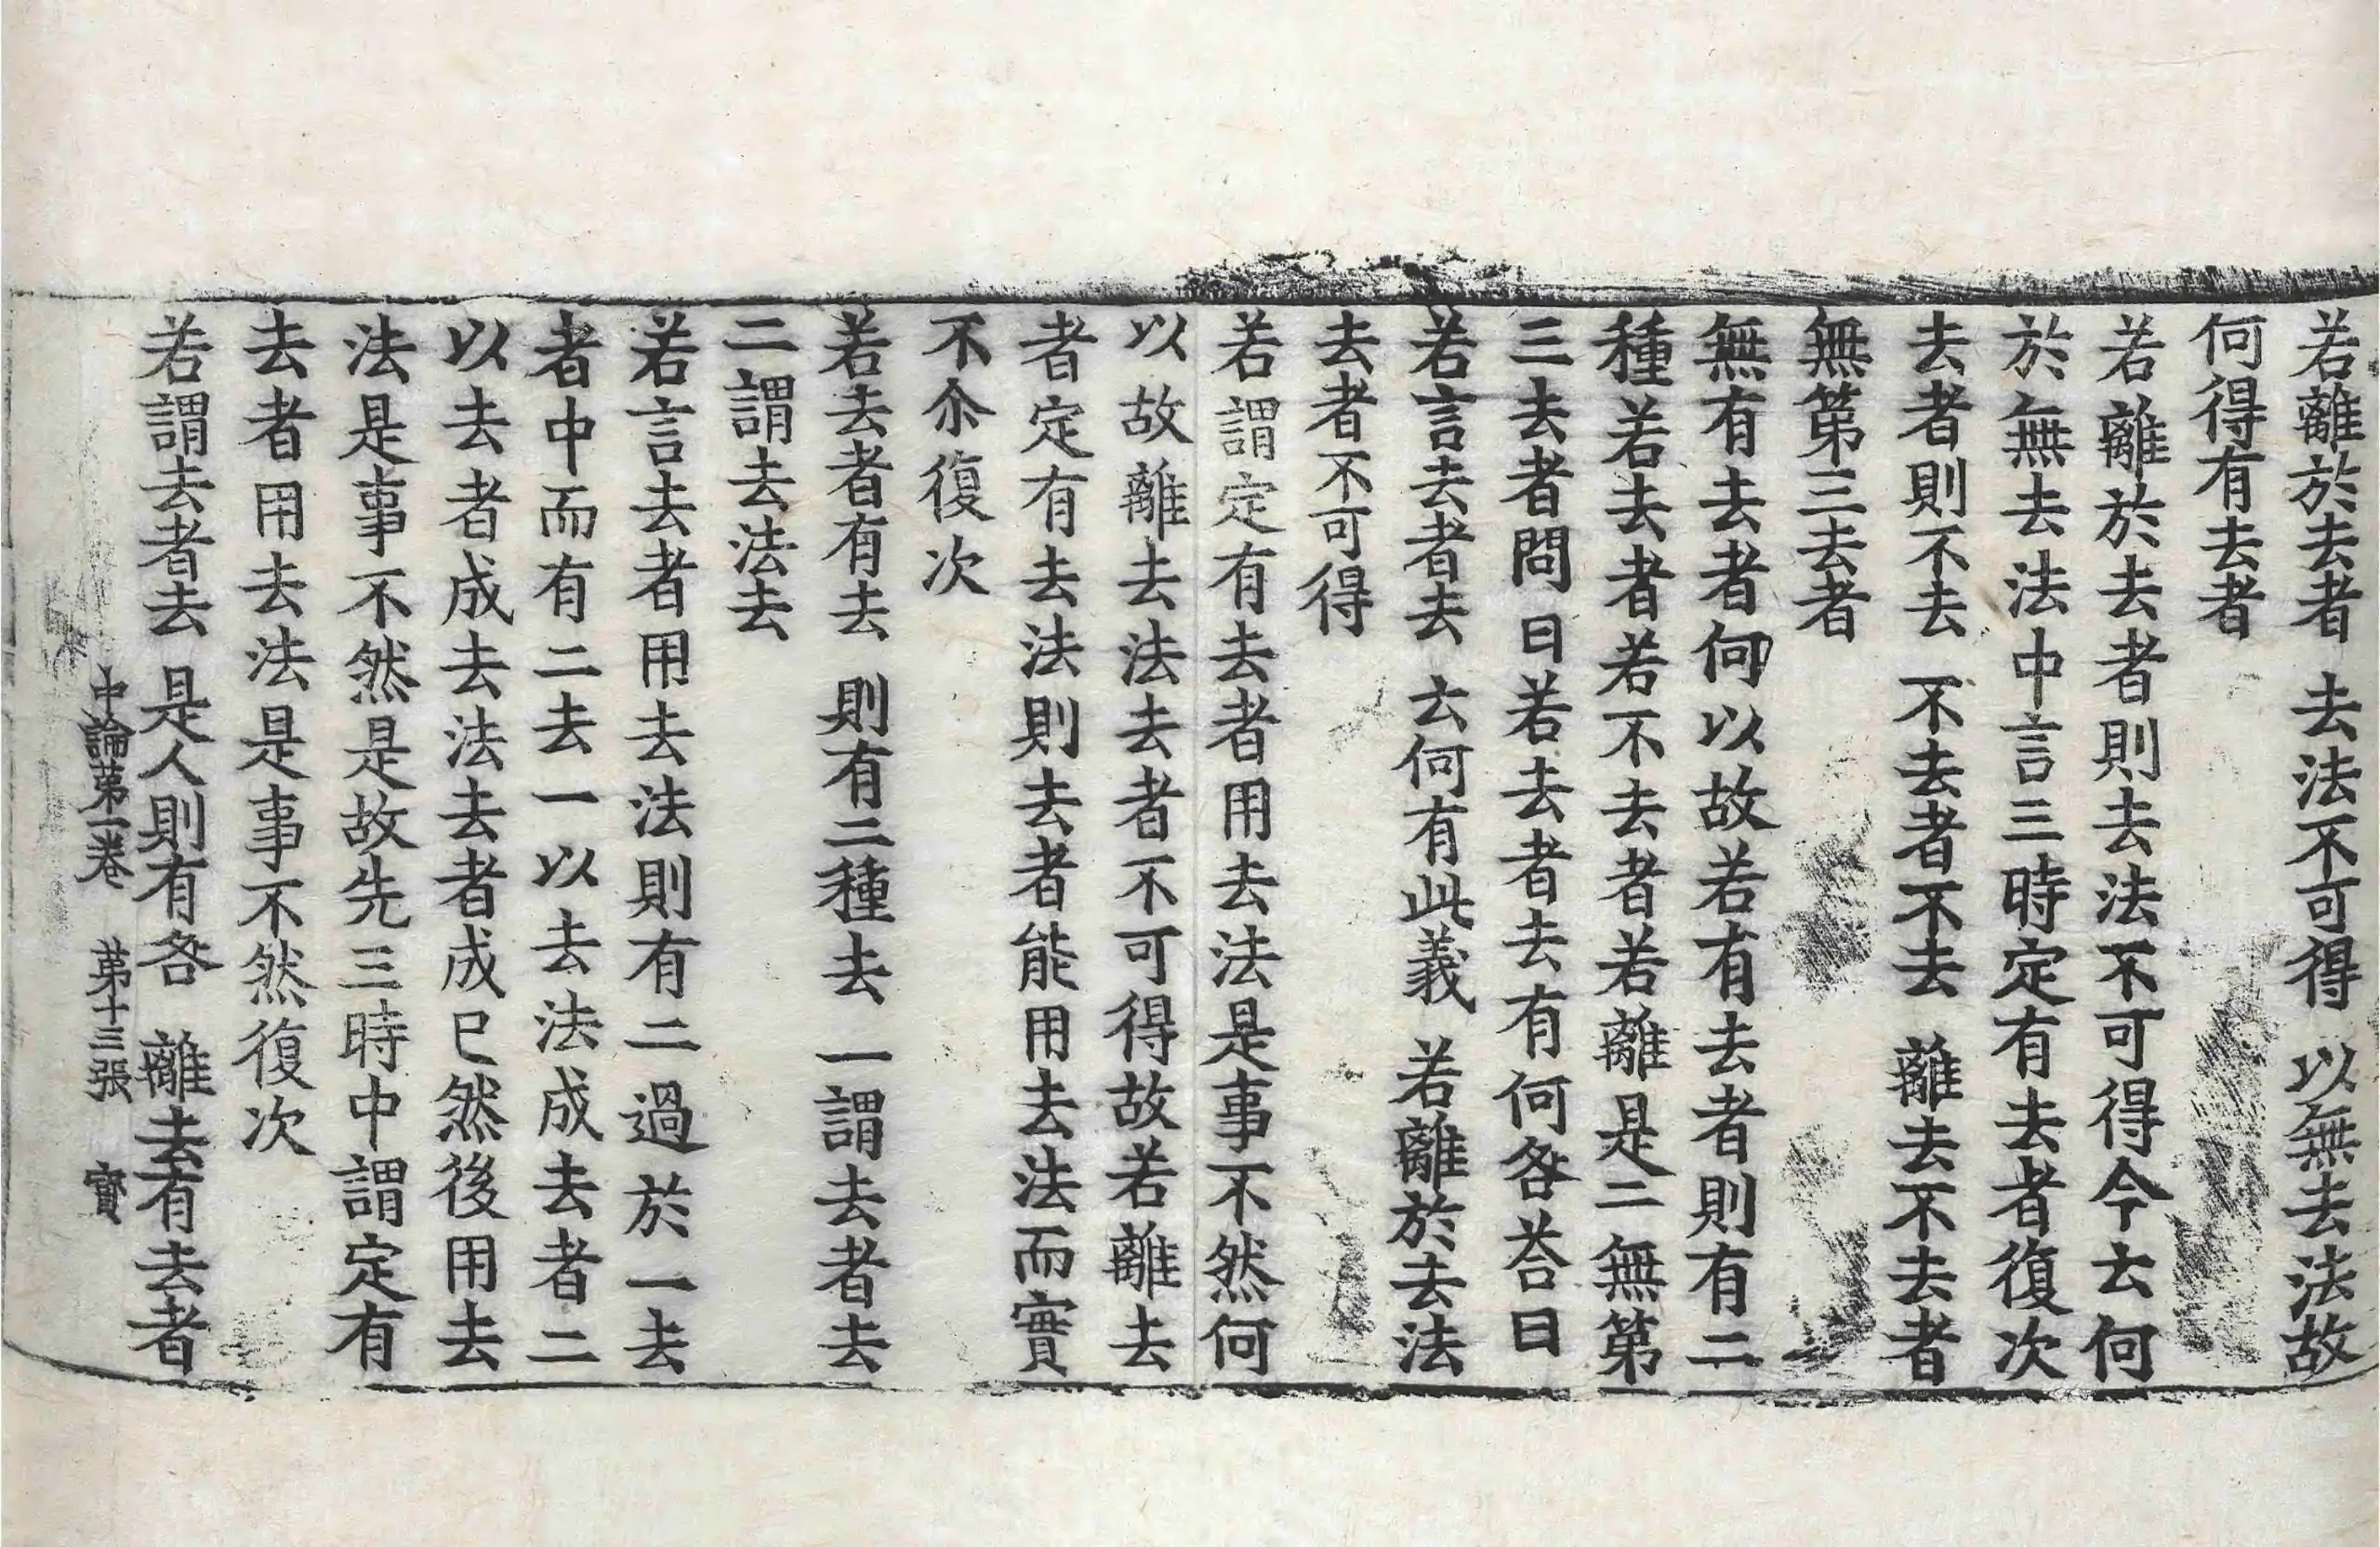 若離於去者　去法不可得　以無去法故
何得有去者
若離於去者則去法不可得今云何
於無去法中言三時定有去者復次
去者則不去　不去者不去　離去不去者
無第三去者
無有去者何以故若有去者則有二
種若去者若不去者若離是二無第
三去者問曰若去者去有何咎荅曰
若言去者去　云何有此義　若離於去法
去者不可得
若謂定有去者用去法是事不然何
以故離去法去者不可得故若離去
者定有去法則去者能用去法而實
不尒復次
若去者有去　則有二種去　一謂去者去
二謂去法去
若言去者用去法則有二過於一去
者中而有二去一以去法成去者二
以去者成去法去者成已然後用去
法是事不然是故先三時中謂定有
去者用去法是事不然復次
若謂去者去　是人則有咎　離去有去者
中論第一卷　第十三張　寶